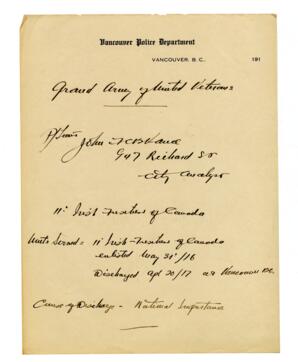 Vancouver Police Department
VANCOUVER, B. C., 191
Grand Army of United Veterans
John
947 Richard St
City Analyst
11th Irish Fusiliers of Canada
Units Served = 11 Irish Fusiliers of Canada
enlisted May 31st/16
Discharged Apl 30/17 at Vancouver BC.
Cause of Discharge - National Importance